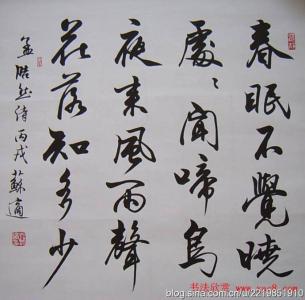 春眠不覺曉
處〻聞啼鳥
夜来風雨聲
花落知多少
孟浩然詩丙戌蘇適
书法欣赏
blog.sina.com.cn/u/2219851910